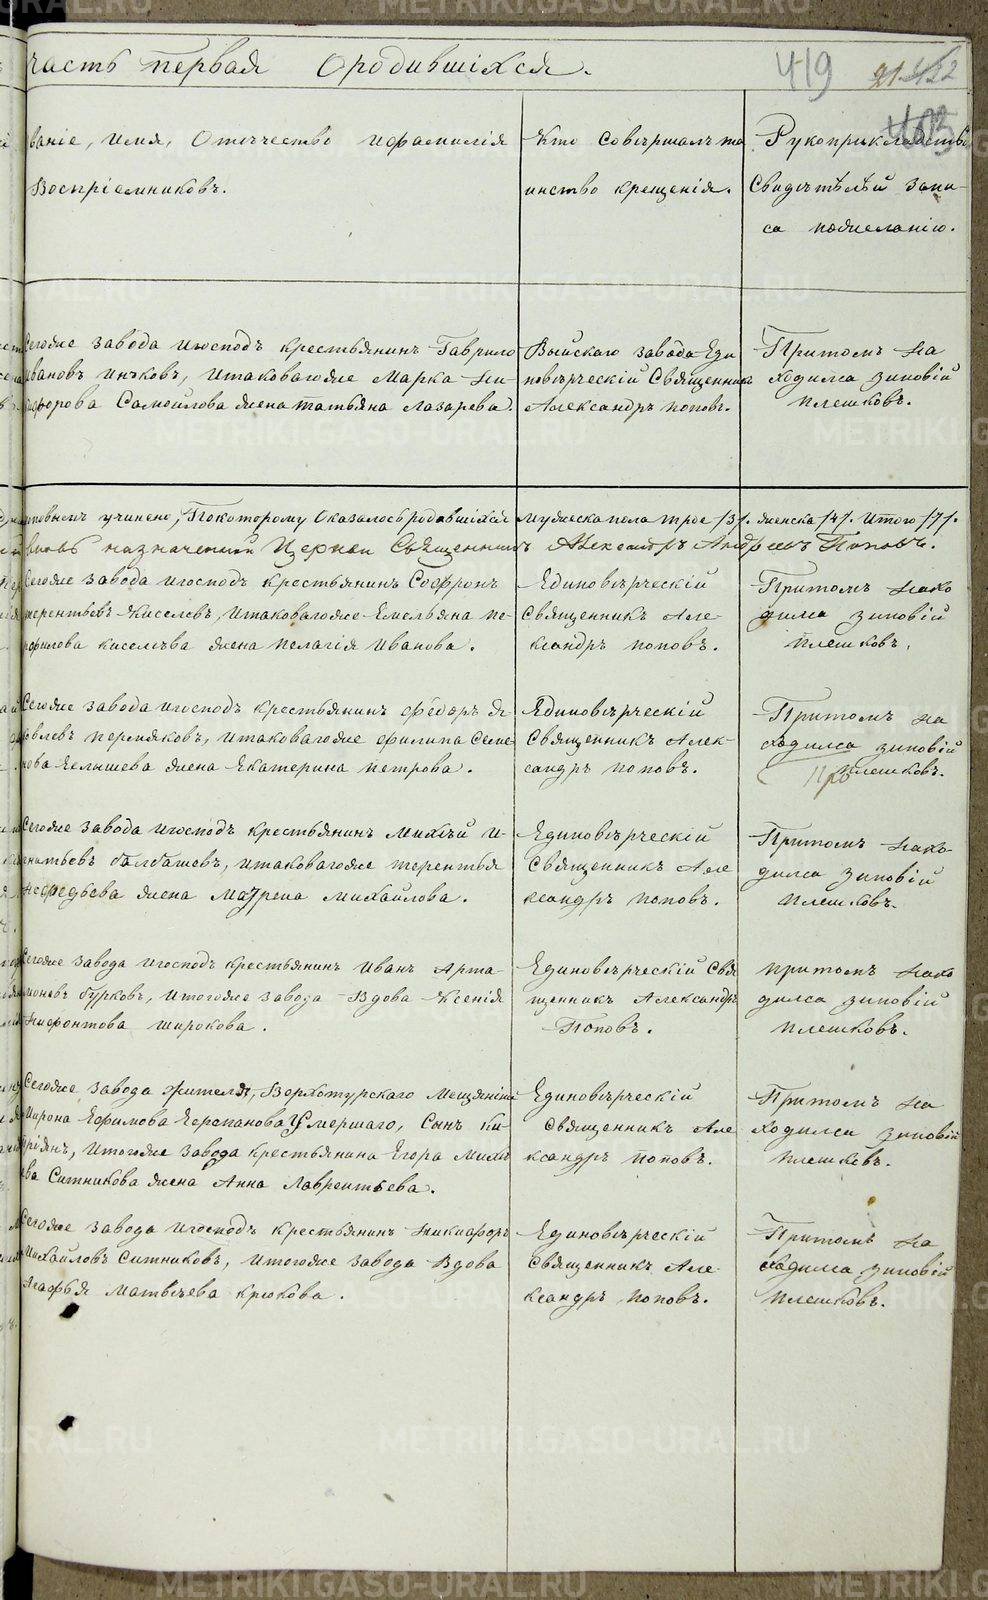 часть первая Ородившихся.
419
422
ваніе, имя, Отечество ифамилія
Воспріемниковъ.
Кто совершалъ та
инство крещенія.
Рукоприкладство
Свидѣтѣлѣй запи-
са пожеланію.
Сегоже завода игосподъ крестьянинъ Гаврило
Ивановъ Инъковъ, итаковагоже Марка Ни-
кифорова Самойлова жена татьяна лазарева.
Выйскаго завода Еди
новѣрческій Священникъ
Александръ поповъ.
Притомъ на
ходился зиновій
плешковъ.
учинено, Покоторому Оказалосьродившихся мужеска пола трое /3/. женска /4/. Итого /7/.
вновь назначенный Церкви Священникъ Александръ Андреевъ Поповъ.
Сегоже завода игосподъ крестьянинъ Софронъ
терентьевъ Киселевъ, итаковагоже Емельяна пе-
рфилова киселѣва жена пелагія иванова.
Единовѣрческій
священникъ Але-
ксандръ поповъ.
Притомъ нахо
дился зиновій
плешковъ.
Сегоже завода игосподъ крестьянинъ федоръ я
ковлевъ пермяковъ, итаковагоже филипа Семе
нова Белышева жена Екатерина петрова.
Единовѣрческій
Священникъ Алек-
сандръ поповъ.
Притомъ на
ходился зиновій
плешковъ.
Сегоже завода игосподъ крестьянинъ Михѣй и-
гнатьевъ балбашевъ, итаковагоже терентья
Нефедьева жена Матрена михайлова.
Единовѣрческій
Священникъ Але
ксандръ поповъ.
Притомъ нахо-
дился зиновій
плешковъ.
Сегоже завода игосподъ крестьянинъ иванъ Арта-
моновъ бурковъ, итогоже завода Вдова Ксенія
Нифонтова широкова.
Единовѣрческій Свя
щенникъ Александръ
Поповъ.
притомъ нахо
дился зиновій
плешковъ.
Сегоже завода жителя, Верхотурскаго Мещанина
Мирона Ефимова Черепанова Умершаго, сынъ ки-
пріянъ, итогоже завода крестьянина Егора Михѣ
ева Ситникова жена Анна Лаврентьева.
Единовѣрческій
священникъ Але
ксандръ поповъ.
Притомъ на
ходился зиновій
плешковъ.
Сегоже завода игосподъ крестьянинъ Никифоръ
Михайловъ Ситниковъ, итогоже завода Вдова
Агафья Матвѣева крюкова.
Единовѣрческій
священникъ Але
ксандръ поповъ.
Притомъ на
ходился зиновій
плешковъ.
METRIKI.GASO-URAL.RU